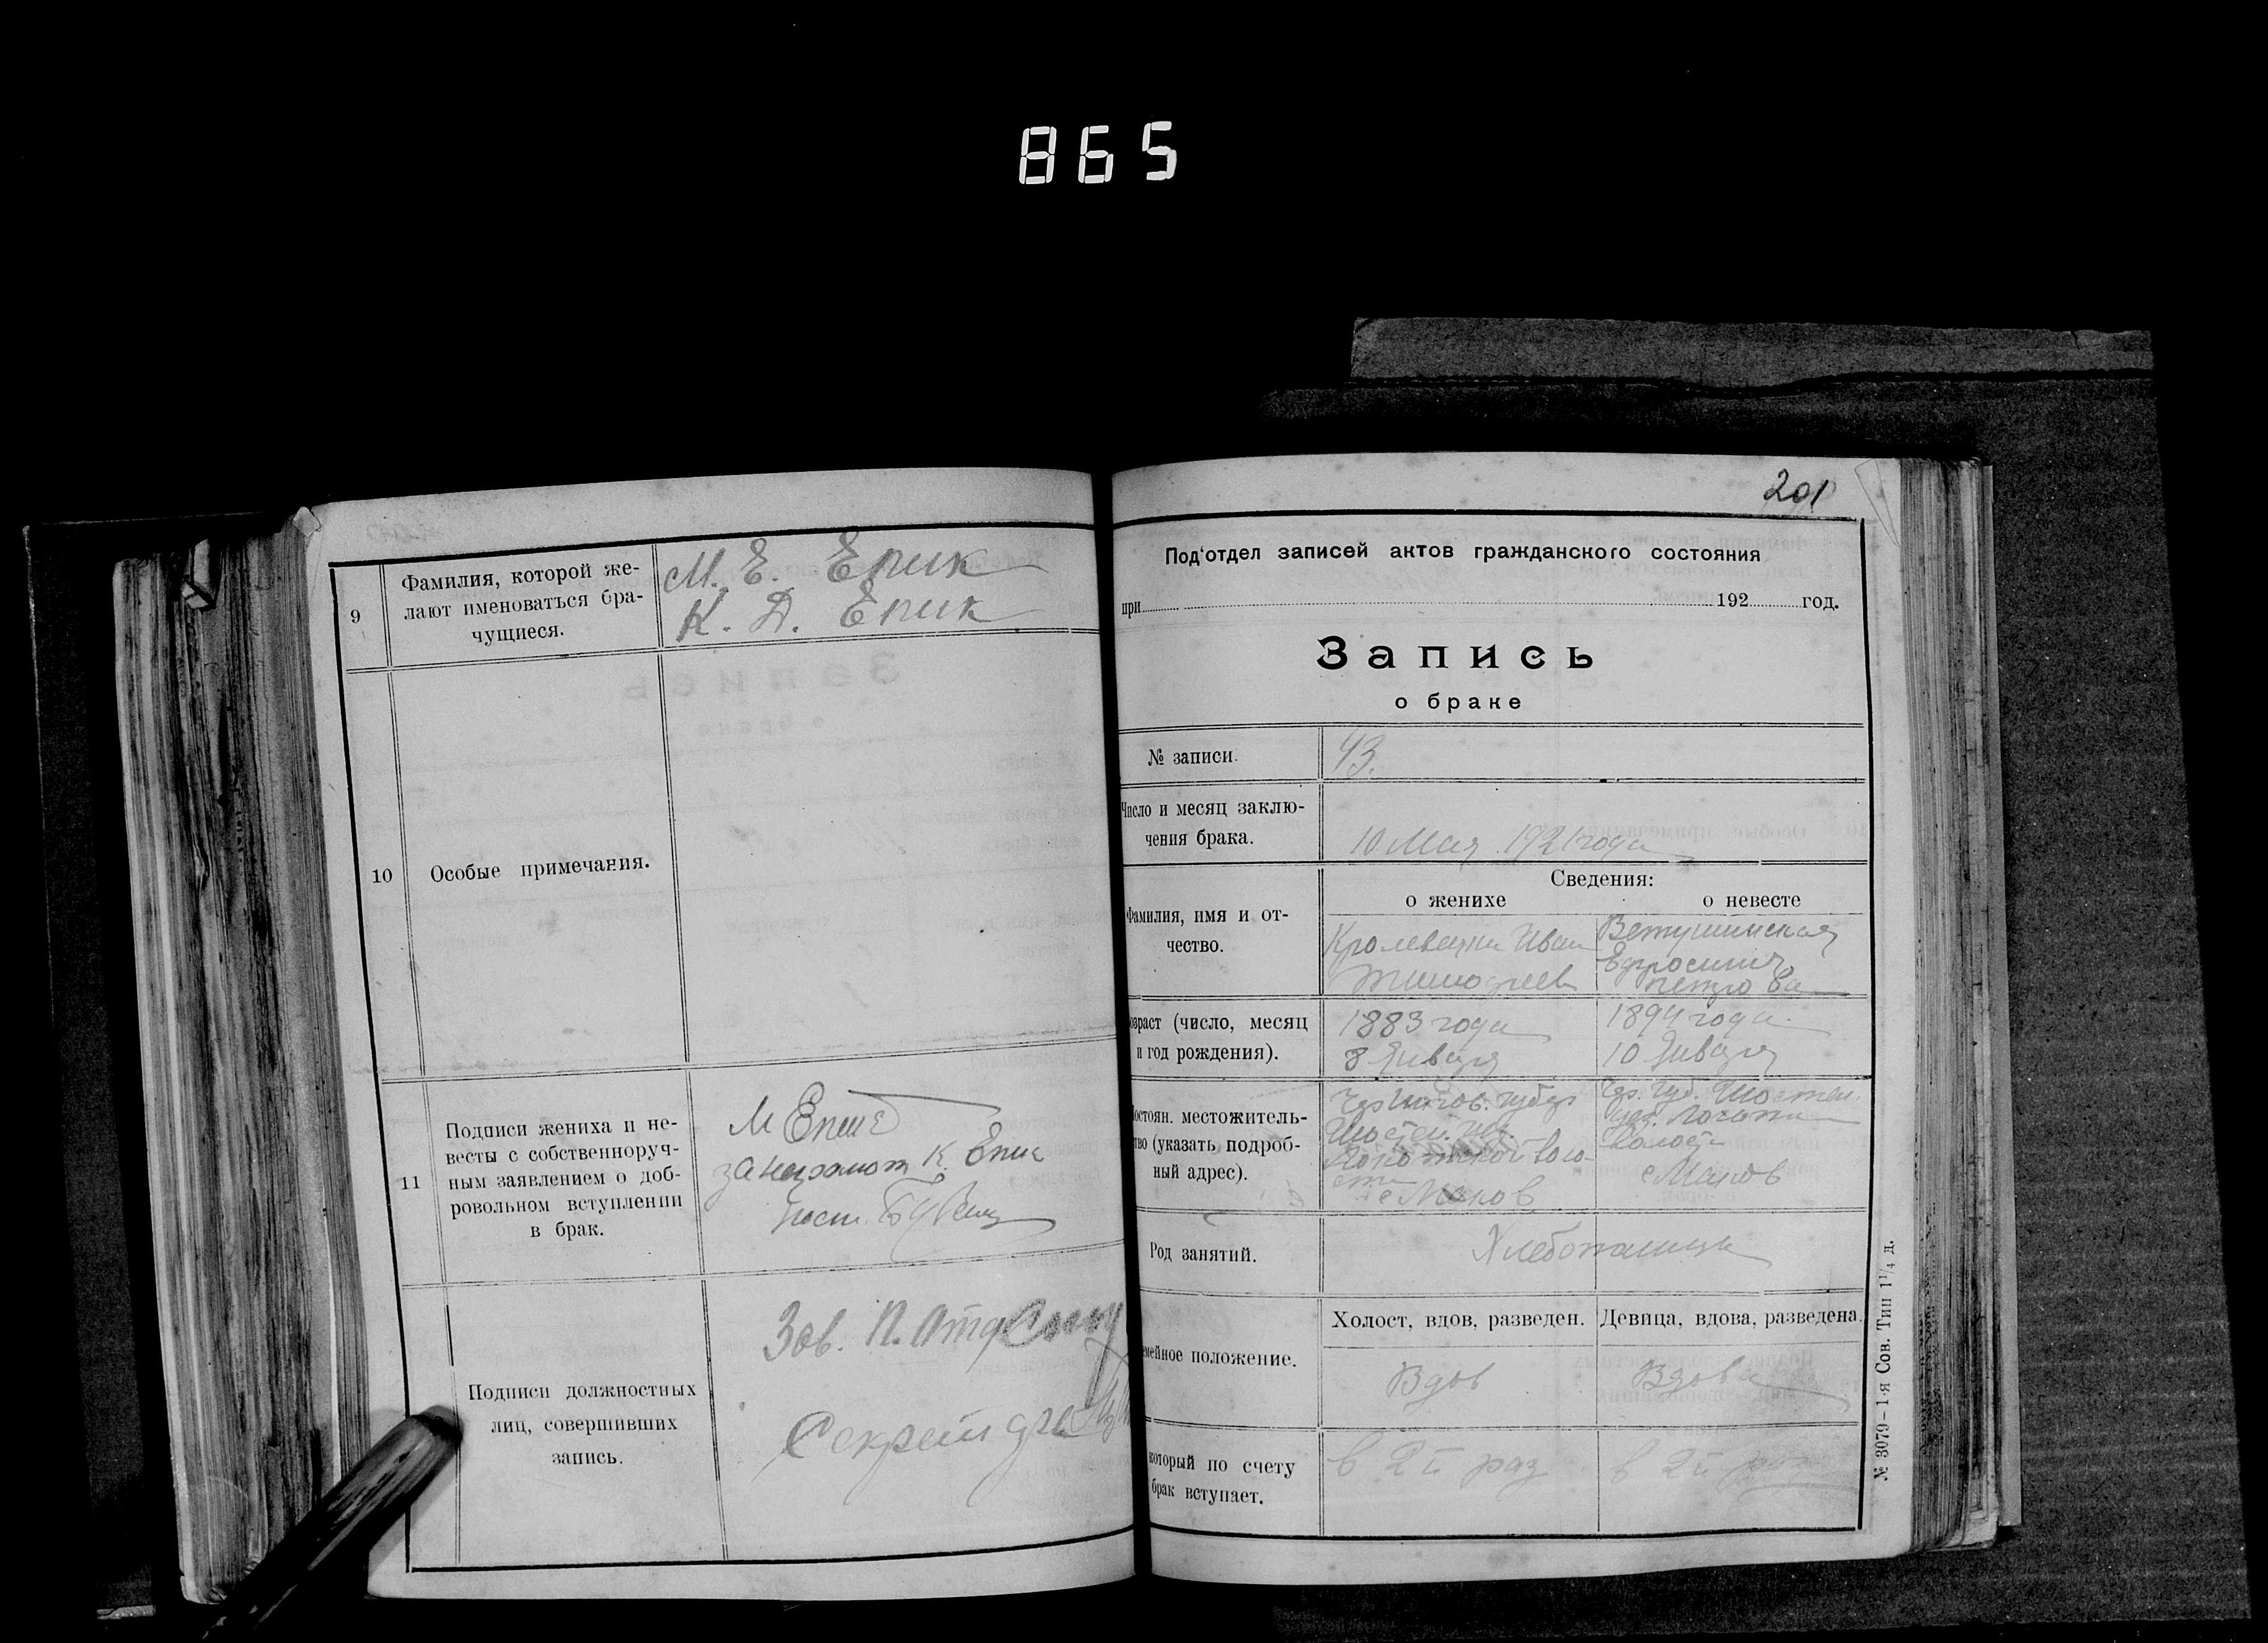 865
9
Фамилия, которой же-
лают именоваться бра-
чущиеся.
М. Е. Епик
К. Д. Епик
10
Особые примечания.
11
Подписи жениха и не-
весты с собственноруч-
ным заявлением о доб-
ровольном вступлении
в брак.
М Епик
за неграмот К. Епик
Подписи должностных
лиц, совершивших
запись.
Зав. П. Отд
Секретарь
201
Под'отдел записей актов гражданского состояния
при 192 год.
Запись
о браке
№ записи.
43.
Число и месяц заклю-
чения брака.
10 Мая 1921 года
Сведения:
о женихе
о невесте
Фамилия, имя и от-
чество.
Иван
Тимофеев
Ефросиния
Петрова
озраст (число, месяц
и год рождения).
1883 года
8 Января
1894 года
10 Января
остоян. местожитель-
тво (указать подроб-
ный адрес).
Чернигов. губер
Шостен. уез.
с Маков
Чер. Губ. Шостен.
уез.
волости
с Маков
Род занятий.
Хлебопашцы
Холост, вдов, разведен.
Девица, вдова, разведена.
мейное положение.
Вдов
Вдова
который по счету
брак вступает.
в 2й раз
в 2й раз
№ 3079-1-я Сов. Тип 1¹/₄ д.